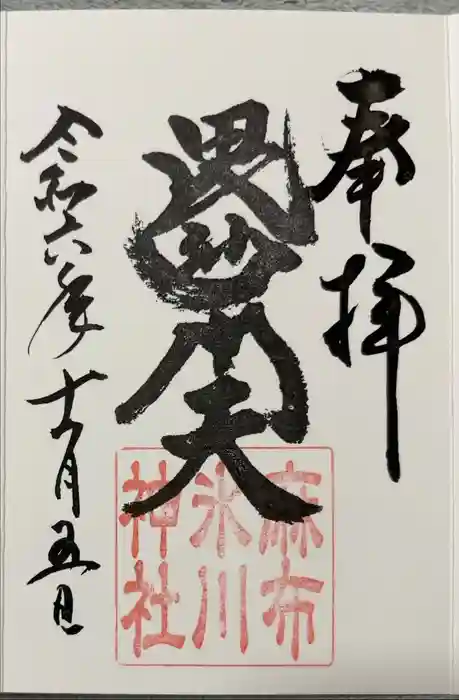 奉拝
毘沙門天
麻布
氷川
神社
令和六年十一月五日